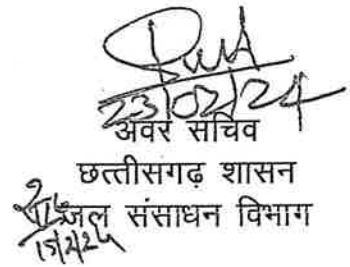 23/02/24
अवर सचिव
छत्तीसगढ़ शासन
जल संसाधन विभाग